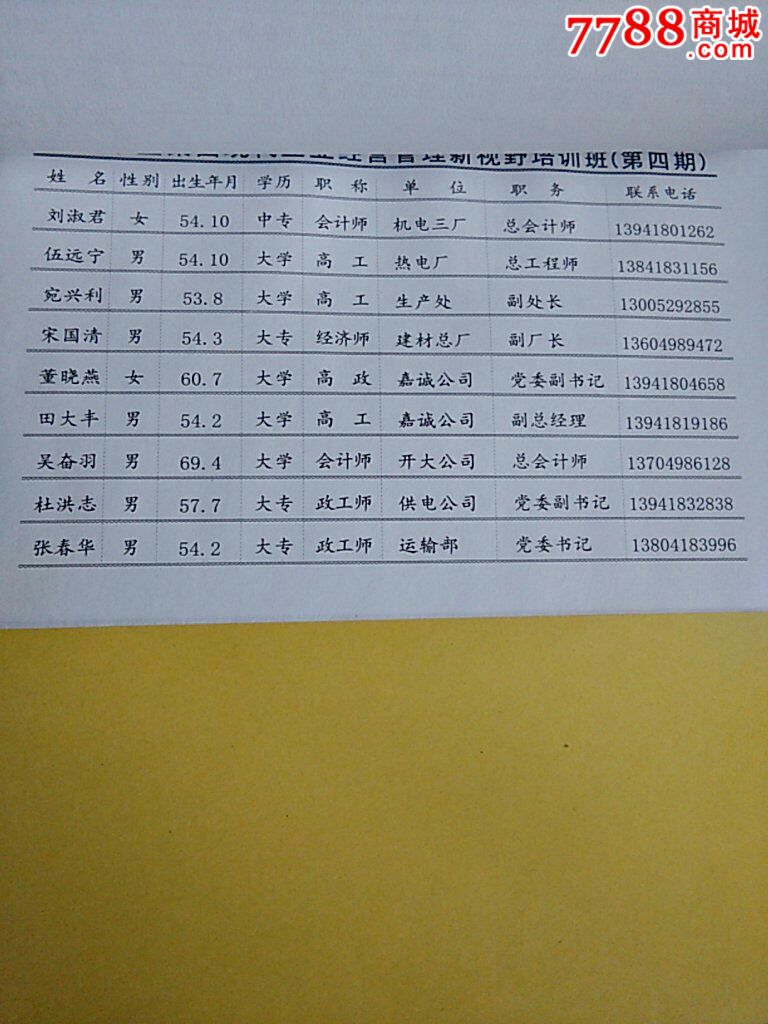 7788商城
.com
现代企业经营管理新视野培训班(第四期)
姓 名 性别 出生年月 学历 职 称 单 位 职 务 联系电话
刘淑君 女 54.10 中专 会计师 机电三厂 总会计师 13941801262
伍远宁 男 54.10 大学 高 工 热电厂 总工程师 13841831156
宛兴利 男 53.8 大学 高 工 生产处 副处长 13005292855
宋国清 男 54.3 大专 经济师 建材总厂 副厂长 13604989472
董晓燕 女 60.7 大学 高 政 嘉诚公司 党委副书记 13941804658
田大丰 男 54.2 大学 高 工 嘉诚公司 副总经理 13941819186
吴奋羽 男 69.4 大学 会计师 开大公司 总会计师 13704986128
杜洪志 男 57.7 大专 政工师 供电公司 党委副书记 13941832838
张春华 男 54.2 大专 政工师 运输部 党委书记 13804183996